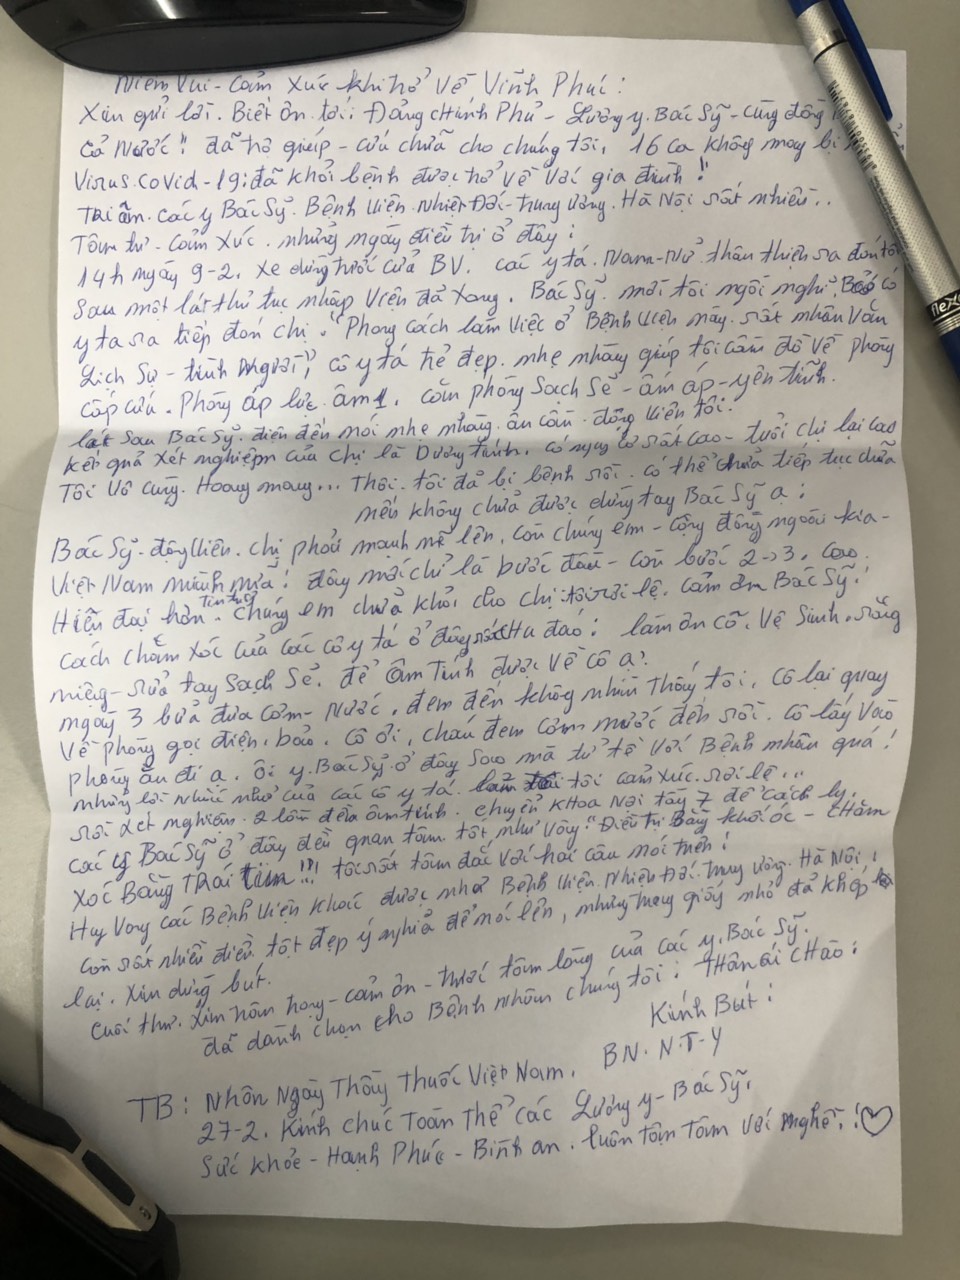 Niềm Vui - Cảm Xúc khi trở Về Vĩnh Phúc:
Xin gửi lời. Biết ơn tới: Đảng chính Phủ - Lương y. Bác Sỹ - cùng đồng
Cả Nước!! đã trợ giúp - cứu chữa cho chúng tôi, 16 ca không may bị
Virus.coVid-19: đã khỏi bệnh được trở về với gia đình!!
Tri ân. các y Bác Sỹ. Bệnh Viện. Nhiệt Đới - trung ương. Hà Nội rất nhiều..
Tâm tư - Cảm Xúc. những ngày điều trị ở đây:
14h ngày 9-2. xe dừng trước cửa BV. các y tá. Nam - Nữ. thân thiện ra đón tôi
Sau một lát thủ tục nhập viện đã xong. Bác Sỹ. mời tôi ngồi nghỉ. có
y tá ra tiếp đón chị. "Phong cách làm việc ở Bệnh Viện này. rất nhân văn
Lịch Sự - tình người", cô y tá trẻ đẹp. nhẹ nhàng giúp tôi cầm đồ về phòng
cấp cứu. Phòng áp lực âm 1. căn phòng Sạch Sẽ - ấm áp - yên tĩnh.
lát sau Bác Sỹ. điện đến nói nhẹ nhàng. ân cần. động viên tôi.
kết quả xét nghiệm của chị là Dương tính. có nguy cơ rất cao - tuổi chị lại cao
Tôi Vô cùng. Hoang mang... Thôi. tôi đã bị bệnh rồi. có thể chữa tiếp tục chữa
nếu không chữa được dừng tay Bác Sỹ ạ:
Bác Sỹ - động viên. chị phải mạnh mẽ lên, còn chúng em - cộng đồng ngoài kia -
Việt Nam mình nữa! đây mới chỉ là bước đầu - còn bước 2->3. Cao
Hiện đại hơn. tin tưởng chúng em chữa khỏi cho chị. tôi rơi lệ. cảm ơn Bác Sỹ!
cách chăm xóc của các cô y tá ở đây rất chu đáo: làm ơn cô. Vệ Sinh. răng
miệng - rửa tay sạch sẽ. để Âm Tính được về cô ạ!
ngày 3 bữa đưa cơm - nước. đem đến không nhìn thấy tôi, cô lại quay
về phòng gọi điện. bảo. cô ơi, cháu đem cơm nước đến rồi. cô lấy vào
phòng ăn đi ạ. ôi y. Bác Sỹ ở đây sao mà tử tế với Bệnh nhân quá!
những lời nhắc nhở của các cô y tá làm tôi cảm xúc. rơi lệ...
rồi xét nghiệm. 2 lần đều âm tính. chuyển khoa Nội tầng 7 để cách ly.
các y Bác Sỹ ở đây đều quan tâm tốt như vậy. "Điều trị Bằng khối óc - chăm
xóc Bằng Trái tim"!!! tôi rất tâm đắc với hai câu nói trên!
Hy vọng các Bệnh Viện khác được như Bệnh Viện. Nhiệt Đới. trung ương. Hà Nội!
còn rất nhiều điều. tốt đẹp ý nghĩa để nói lên, nhưng trang giấy nhỏ đã khép
lại. Xin dừng bút.
Cuối thư. xin trân trọng - cảm ơn - trước tấm lòng của các y. Bác Sỹ.
đã dành chọn cho Bệnh nhân chúng tôi! Thân ái chào:
Kính Bút:
BN. N.T-Y
TB: Nhân Ngày Thầy thuốc Việt Nam.
27-2. Kính chúc Toàn Thể các Lương y - Bác Sỹ.
Sức khỏe - Hạnh Phúc - Bình an. luôn tận Tâm với nghề.!